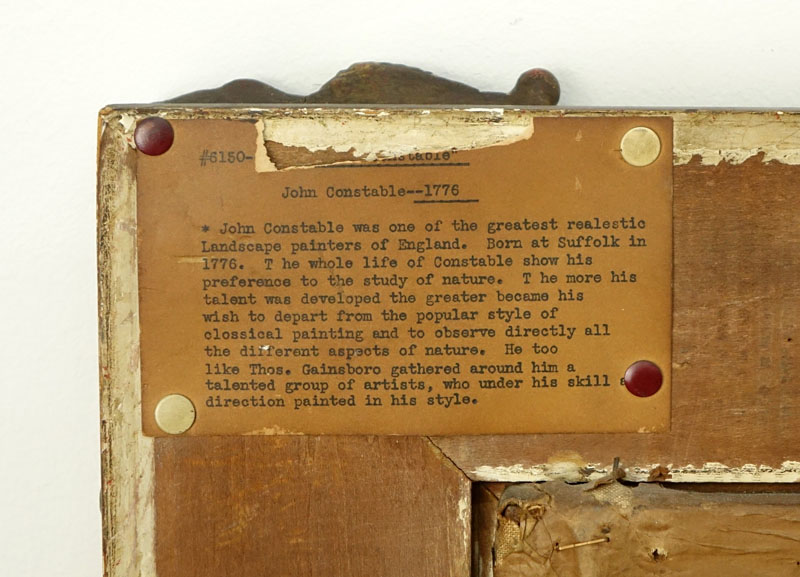 #6150-
John Constable--1776
* John Constable was one of the greatest realestic
Landscape painters of England. Born at Suffolk in
1776. T he whole life of Constable show his
preference to the study of nature. T he more his
talent was developed the greater became his
wish to depart from the popular style of
clossical painting and to observe directly all
the different aspects of nature. He too
like Thos. Gainsboro gathered around him a
talented group of artists, who under his skill
direction painted in his style.